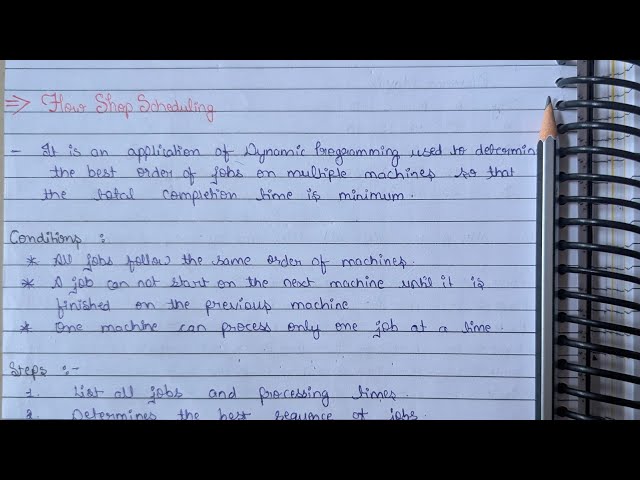 ⇒ Flow Shop Scheduling
- It is an application of Dynamic Programming used to determin
the best order of jobs on multiple machines so that
the total completion time is minimum.
Conditions :
* All jobs follow the same order of machines.
* A job can not start on the next machine until it is
finished on the previous machine
* One machine can process only one job at a time.
Steps :-
1. List all jobs and processing times.
2. Determines the best sequence of jobs.